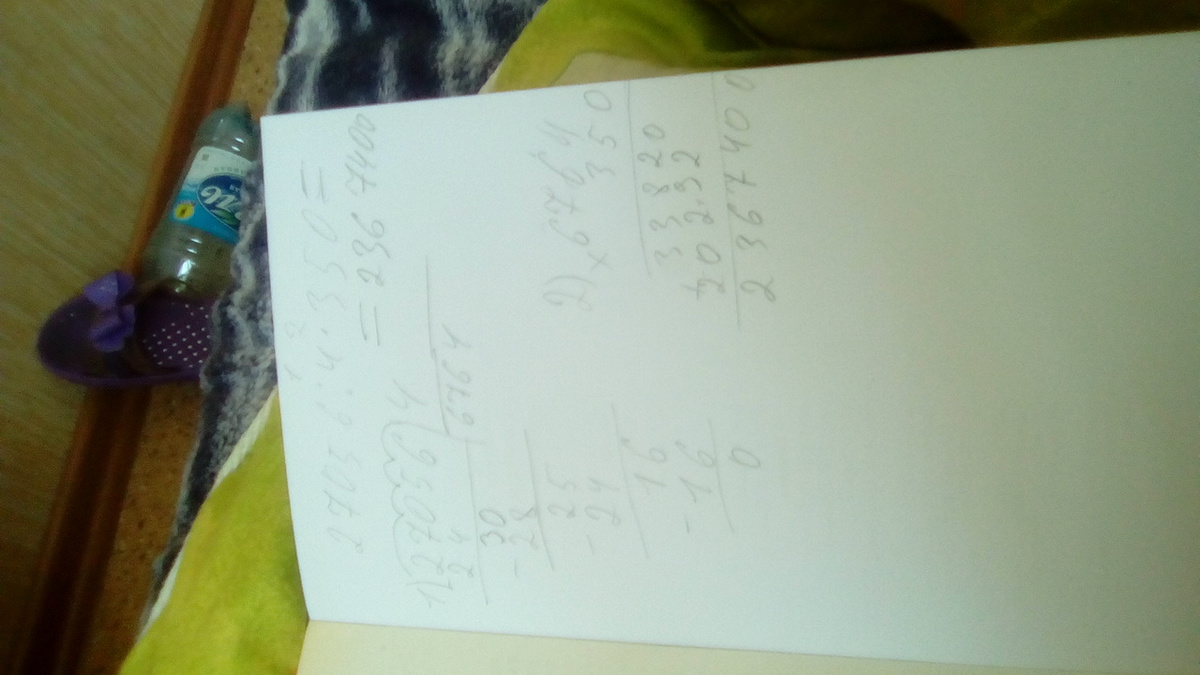 27036:4·350=
=2367400
1) 27056 4
24 6764
30
- 28
25
- 24
16
- 16
0
2) × 6764
350
33820
+ 20292
2367400